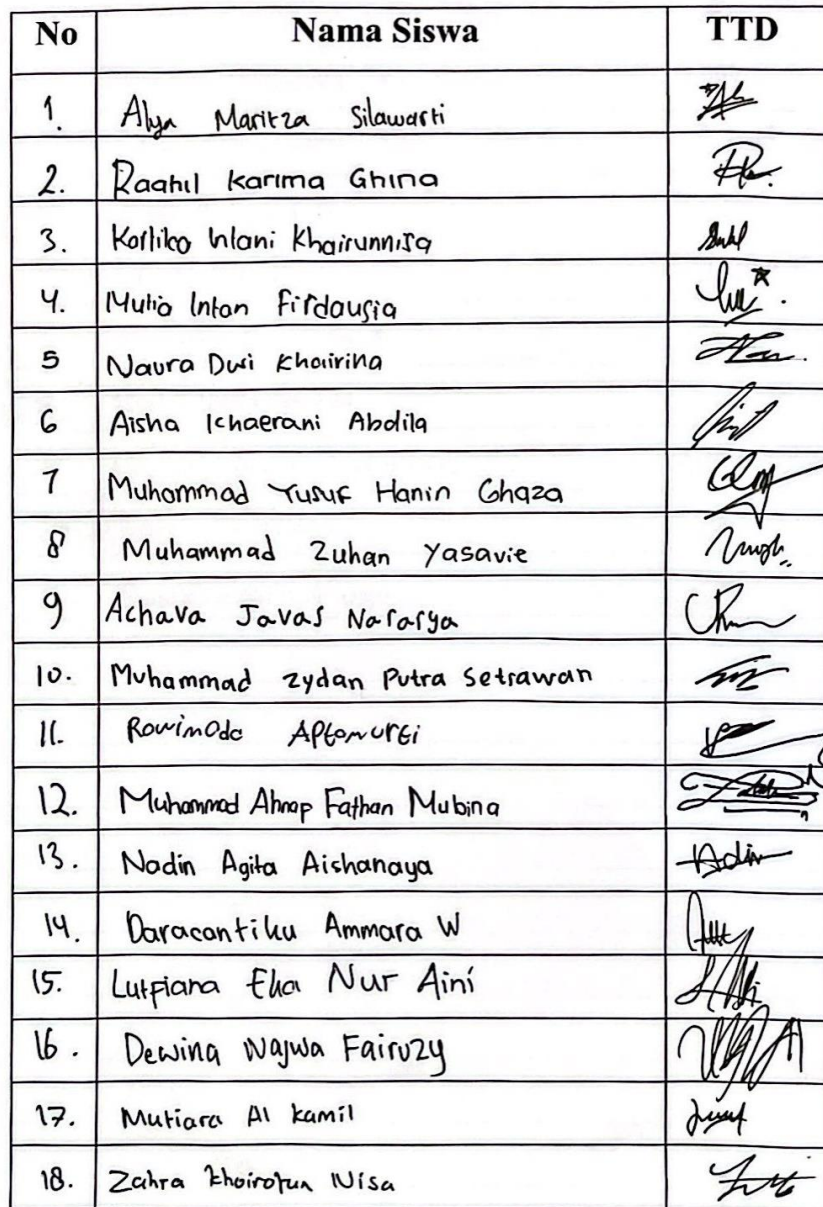 No Nama Siswa TTD
1. Alya Maritza Silawarti
2. Raahil Karima Ghina
3. Khairunnisa
4. Mutia Intan Firdausia
5 Naura Dwi Khoirina
6 Aisha Ichaerani Abdila
7 Muhammad Yusuf Hanin Ghaza
8 Muhammad Zuhan Yasavie
9 Achava Javas Nararya
10. Muhammad Zydan Putra Setrawan
11.
12. Muhammad Ahnap Fathan Mubina
13. Nadin Agita Aishanaya
14. Daracantiku Ammara W
15. Lutpiana Eka Nur Aini
16. Dewina Najwa Fairuzy
17. Mutiara Al Kamil
18. Zahra Khoirotun Nisa